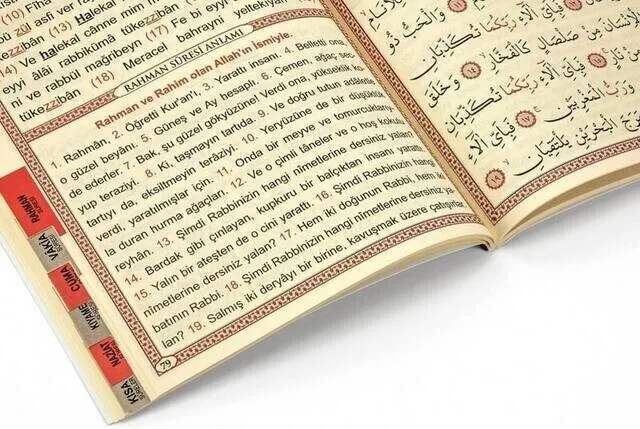 Fiha
asfi ver ra
zül
tükezzibân (13) Halekal
cânne min
(14) Ve halekal
(17) Fe bi eyyi
eyyi âlâi rabbikümâ tükezzibân
ni ve rabbül mağribeyn
(18) Meracel bahrayni yeltekiyân
tükezzibân
RAHMAN SÛRESİ ANLAMI
Rahman ve Rahîm olan Allah'ın ismiyle.
1. Rahmân, 2. Öğretti Kur'an'ı. 3. Yarattı insanı. 4. Belletti ona,
o güzel beyânı. 5. Güneş ve Ay hesaplı. 6. Çemen, ağaç sec
de ederler. 7. Bak, şu güzel gökyüzüne! Verdi ona, yükseklik ko
yup teraziyi. 8. Ki, taşmayın tartıda. 9. Ve doğru tutun adâletle
tartıyı da, eksiltmeyin terâziyi. 10. Yeryüzüne de bir düşüklük
verdi, yaratılmışlar için. 11. Onda bir meyve ve tomurcuklarıy
la duran hurma ağaçları. 12. Ve o çimli tâneler ve o hoş kokulu
reyhân. 13. Şimdi Rabbinizin hangi nîmetlerine dersiniz yalan?
14. Bardak gibi çınlayan, kupkuru bir balçıktan insanı yarattı.
15. Yalın bir ateşten de o cini yarattı. 16. Şimdi Rabbinizin hangi
nîmetlerine dersiniz yalan? 17. Hem iki doğunun Rabbi, hem iki
batının Rabbi. 18. Şimdi Rabbinizin hangi nîmetlerine dersiniz ya
lan? 19. Salmış iki deryâyı bir birine, kavuşmak üzere çatışırlar.
79
RAHMAN
SÛRESİ
VÂKIA
SÛRESİ
CUMA
SÛRESİ
KIYAME
SÛRESİ
NAZİAT
SÛRESİ
KISA
SÛRELER
وَالْحَبُّ ذُو
رَبِّكُمَا تُكَذِّبَانِ
مِنْ صَلْصَالٍ كَالْفَخَّارِ ﴿١٤﴾ وَخَلَقَ
فَبِأَيِّ آلَاءِ رَبِّكُمَا تُكَذِّبَانِ
وَرَبُّ الْمَغْرِبَيْنِ ﴿١٧﴾ فَبِأَيِّ آلَاءِ
الْبَحْرَيْنِ يَلْتَقِيَانِ ﴿١٩﴾